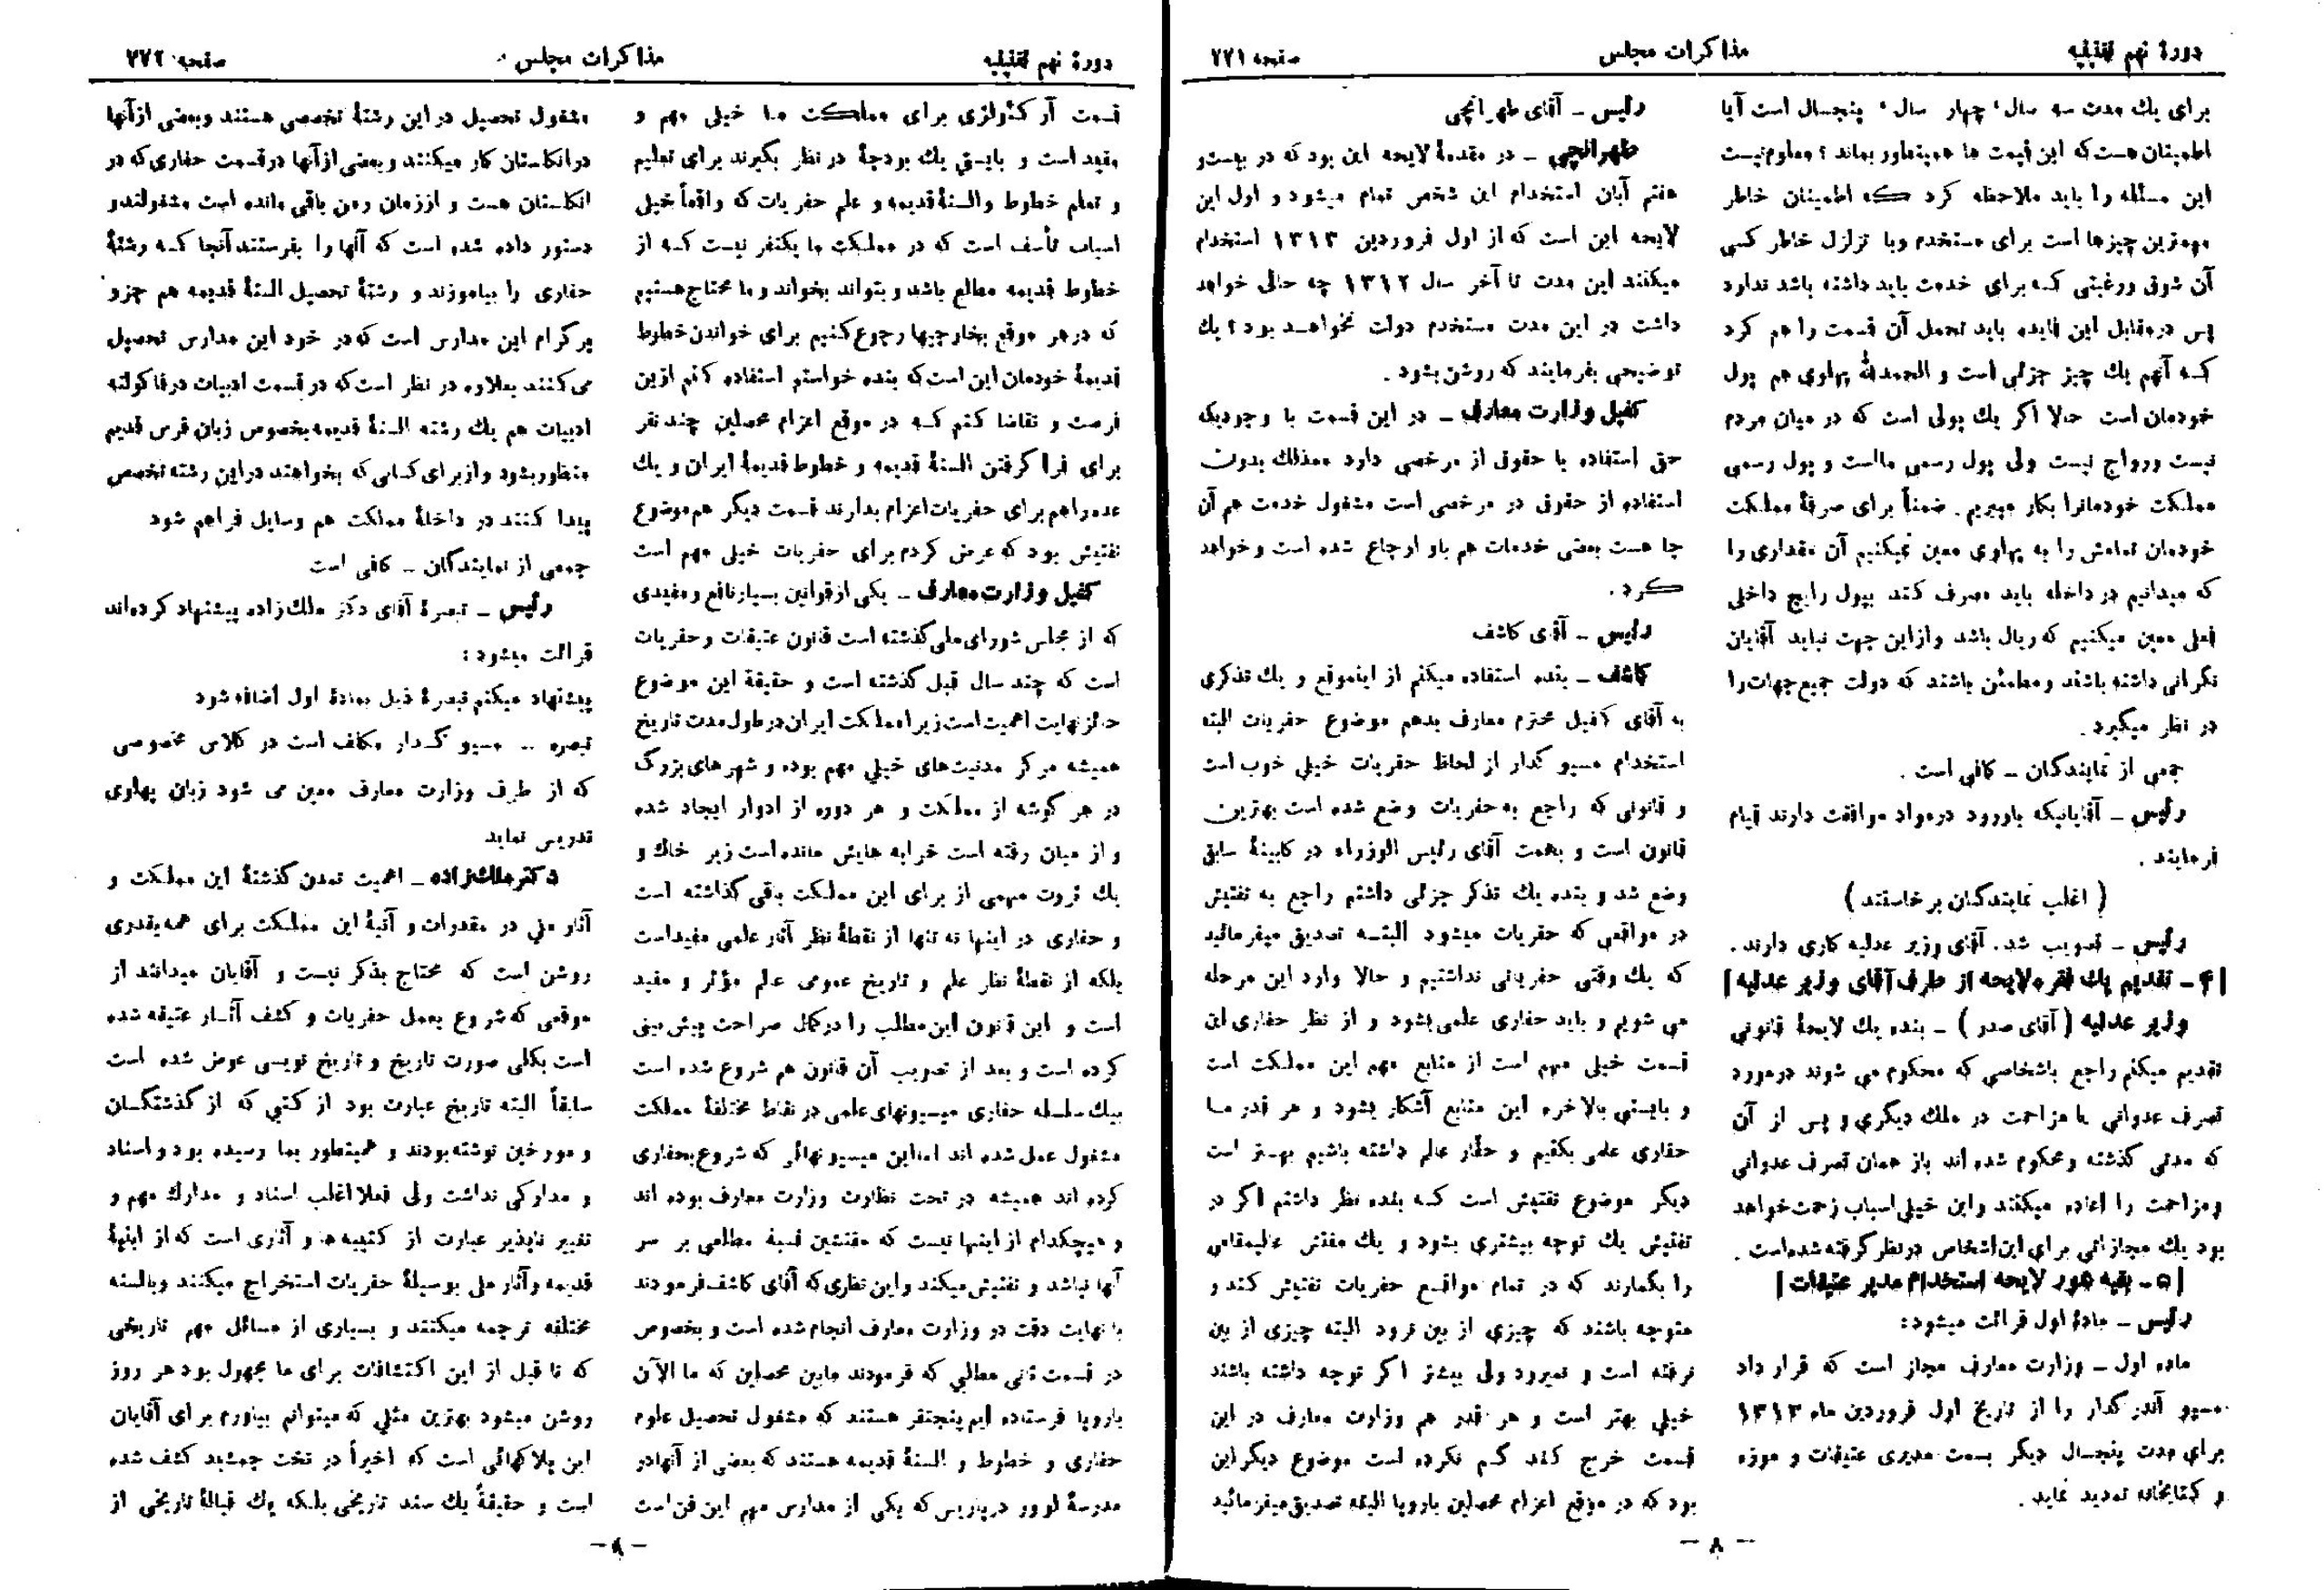 دورهٔ نهم تقنینیه
مذاکرات مجلس
صفحه ۷۷۱
برای یك مدت سه سال، چهار سال، پنجسال است آیا
اطمینان هست که این قیمت ها همینطور بماند؟ معلوم نیست
این مسئله را باید ملاحظه کرد که اطمینان خاطر
مهمترین چیزها است برای مستخدم وبا تزلزل خاطر کسی
آن شوق ورغبتی که برای خدمت باید داشته باشد ندارد
پس در مقابل این فایده باید تحمل آن قسمت را هم کرد
که آنهم یك چیز جزئی است و الحمدلله پهلوی هم پول
خودمان است حالا اگر یك پولی است که در میان مردم
نیست ورواج نیست ولی پول رسمی مااست و پول رسمی
مملکت خودمانرا بکار میبریم. ضمناً برای صرفهٔ مملکت
خودمان تمامش را به پهلوی معین نمیکنیم آن مقداری را
که میدانیم در داخله باید مصرف کند بپول رایج داخلی
فعلی معین میکنیم که ریال باشد وازاین جهت نباید آقایان
نگرانی داشته باشند ومطمئن باشند که دولت جمیع جهات را
در نظر میگیرد.
جمعی از نمایندگان ـ کافی است.
رئیس ـ آقایانیکه باورود درمواد موافقت دارند قیام
فرمایند.
(اغلب نمایندگان برخاستند)
رئیس ـ تصویب شد. آقای وزیر عدلیه کاری دارند.
[۴ ـ تقدیم یك فقره لایحه از طرف آقای وزیر عدلیه]
وزیر عدلیه (آقای صدر) ـ بنده یك لایحهٔ قانونی
تقدیم میکنم راجع باشخاصی که محکوم می شوند درمورد
تصرف عدوانی یا مزاحمت در ملك دیگری و پس از آن
که مدتی گذشته ومحکوم شده اند باز همان تصرف عدوانی
ومزاحمت را اعاده میکنند واین خیلی اسباب زحمت خواهد
بود یك مجازاتی برای این اشخاص درنظر گرفته شده است.
[۵ ـ بقیه شور لایحه استخدام مدیر عتیقات]
رئیس ـ مادهٔ اول قرائت میشود:
ماده اول ـ وزارت معارف مجاز است که قرار داد
مسیو آندر گدار را از تاریخ اول فروردین ماه ۱۳۱۳
برای مدت پنجسال دیگر بسمت مدیری عتیقات و موزه
و کتابخانه تمدید نماید.
رئیس ـ آقای طهرانچی
طهرانچی ـ در مقدمهٔ لایحه این بود که در بیست و
هفتم آبان استخدام این شخص تمام میشود و اول این
لایحه این است که از اول فروردین ۱۳۱۳ استخدام
میکنند این مدت تا آخر سال ۱۳۱۲ چه حالی خواهد
داشت در این مدت مستخدم دولت نخواهد بود؟ یك
توضیحی بفرمایند که روشن بشود.
کفیل وزارت معارف ـ در این قسمت با وجودیکه
حق استفاده با حقوق از مرخصی دارد معذلك بدون
استفاده از حقوق در مرخصی است مشغول خدمت هم آن
جا هست بعضی خدمات هم باو ارجاع شده است و خواهد
کرد.
رئیس ـ آقای کاشف
کاشف ـ بنده استفاده میکنم از اینموقع و یك تذکری
به آقای کفیل محترم معارف بدهم موضوع حفریات البته
استخدام مسیو گدار از لحاظ حفریات خیلی خوب است
و قانونی که راجع به حفریات وضع شده است بهترین
قانون است و بهمت آقای رئیس الوزراء در کابینهٔ سابق
وضع شد و بنده یك تذکر جزئی داشتم راجع به تفتیش
در مواقعی که حفریات میشود البته تصدیق میفرمائید
که یك وقتی حفریاتی نداشتیم و حالا وارد این مرحله
می شویم و باید حفاری علمی بشود و از نظر حفاری این
قسمت خیلی مهم است از منابع مهم این مملکت است
و بایستی بالاخره این منابع آشکار بشود و هر قدر ما
حفاری علمی بکنیم و حفّار عالم داشته باشیم بهتر است
دیگر موضوع تفتیش است که بنده نظر داشتم اگر در
تفتیش یك توجه بیشتری بشود و یك مفتش عالیمقامی
را بگمارند که در تمام مواقع حفریات تفتیش کند و
متوجه باشند که چیزی از بین نرود البته چیزی از بین
نرفته است و نمیرود ولی بیشتر اگر توجه داشته باشند
خیلی بهتر است و هر قدر هم وزارت معارف در این
قسمت خرج کند کم نکرده است موضوع دیگر این
بود که در موقع اعزام محصلین باروپا البته تصدیق میفرمائید
ـ ۸ ـ
دورهٔ نهم تقنینیه
مذاکرات مجلس
صفحه ۷۷۲
قسمت آرکئولژی برای مملکت ما خیلی مهم و
مفید است و بایستی یك بودجهٔ در نظر بگیرند برای تعلیم
و تعلم خطوط والسنهٔ قدیمه و علم حفریات که واقعاً خیلی
اسباب تأسف است که در مملکت ما یکنفر نیست که از
خطوط قدیمه مطلع باشد و بتواند بخواند و ما محتاج هستیم
که درهر موقع بخارجیها رجوع کنیم برای خواندن خطوط
قدیمهٔ خودمان این است که بنده خواستم استفاده کنم ازین
فرصت و تقاضا کنم که در موقع اعزام محصلین چند نفر
برای فرا گرفتن السنهٔ قدیمه و خطوط قدیمهٔ ایران و یك
عده راهم برای حفریات اعزام بدارند قسمت دیگر هم موضوع
تفتیش بود که عرض کردم برای حفریات خیلی مهم است
کفیل وزارت معارف ـ یکی از قوانین بسیار نافع ومفیدی
که از مجلس شورای ملی گذشته است قانون عتیقات و حفریات
است که چند سال قبل گذشته است و حقیقة این موضوع
حائز نهایت اهمیت است زیرا مملکت ایران در طول مدت تاریخ
همیشه مرکز مدنیت های خیلی مهم بوده و شهر های بزرگ
در هر گوشه از مملکت و هر دوره از ادوار ایجاد شده
و از میان رفته است خرابه هایش مانده است زیر خاك و
یك ثروت مهمی از برای این مملکت باقی گذاشته است
و حفاری در اینها نه تنها از نقطهٔ نظر آثار علمی مفید است
بلکه از نقطهٔ نظر علم و تاریخ عمومی عالم مؤثر و مفید
است و این قانون این مطلب را در کمال صراحت پیش بینی
کرده است و بعد از تصویب آن قانون هم شروع شده است
بیك سلسله حفاری میسیونهای علمی در نقاط مختلفهٔ مملکت
مشغول عمل شده اند اما این میسیونهائی که شروع بحفاری
کرده اند همیشه در تحت نظارت وزارت معارف بوده اند
و هیچکدام از اینها نیست که مفتشین نسبةً مطلعی بر سر
آنها نباشد و تفتیش میکند و این نظری که آقای کاشف فرمودند
با نهایت دقت در وزارت معارف انجام شده است و بخصوص
در قسمت ثانی مطالبی که فرمودند مابین محصلین که ما الآن
باروپا فرستاده ایم پنجنفر هستند که مشغول تحصیل علوم
حفاری و خطوط و السنهٔ قدیمه هستند که بعضی از آنهادر
مدرسهٔ لوور درپاریس که یکی از مدارس مهم این فن است
مشغول تحصیل در این رشتهٔ تخصصی هستند وبعضی ازآنها
در انگلستان کار میکنند و بعضی از آنها در قسمت حفاری که در
انگلستان هست و از زمان رمن باقی مانده است مشغولند و
دستور داده شده است که آنها را بفرستند آنجا که رشتهٔ
حفاری را بیاموزند و رشتهٔ تحصیل السنهٔ قدیمه هم جزو
پرگرام این مدارس است که در خود این مدارس تحصیل
می کنند بعلاوه در نظر است که در قسمت ادبیات درفاکولته
ادبیات هم یك رشته السنهٔ قدیمه بخصوص زبان فرس قدیم
منظور بشود و از برای کسانی که بخواهند در این رشته تخصص
پیدا کنند در داخلهٔ مملکت هم وسایل فراهم شود
جمعی از نمایندگان ـ کافی است
رئیس ـ تبصرهٔ آقای دکتر ملك زاده پیشنهاد کرده اند
قرائت میشود:
پیشنهاد میکنم تبصرهٔ ذیل بمادهٔ اول اضافه شود
تبصره ـ مسیو گدار مکلف است در کلاس مخصوصی
که از طرف وزارت معارف معین می شود زبان پهلوی
تدریس نماید
دکتر ملك زاده ـ اهمیت تمدن گذشتهٔ این مملکت و
آثار ملی در مقدرات و آتیهٔ این مملکت برای همه بقدری
روشن است که محتاج بذکر نیست و آقایان میدانند از
موقعی که شروع بعمل حفریات و کشف آثار عتیقه شده
است بکلی صورت تاریخ و تاریخ نویسی عوض شده است
سابقاً البته تاریخ عبارت بود از کتبی که از گذشتگان
و مورخین نوشته بودند و همینطور بما رسیده بود و اسناد
و مدارکی نداشت ولی فعلا اغلب اسناد و مدارك مهم و
تغییر ناپذیر عبارت از کتیبه ها و آثاری است که از ابنیهٔ
قدیمه وآثار ملی بوسیلهٔ حفریات استخراج میکنند وبالسنه
مختلفه ترجمه میکنند و بسیاری از مسائل مهم تاریخی
که تا قبل از این اکتشافات برای ما مجهول بود هر روز
روشن میشود بهترین مثلی که میتوانم بیاورم برای آقایان
این پلاکهائی است که اخیراً در تخت جمشید کشف شده
است و حقیقةً یك سند تاریخی بلکه یك قبالهٔ تاریخی از
ـ ۹ ـ